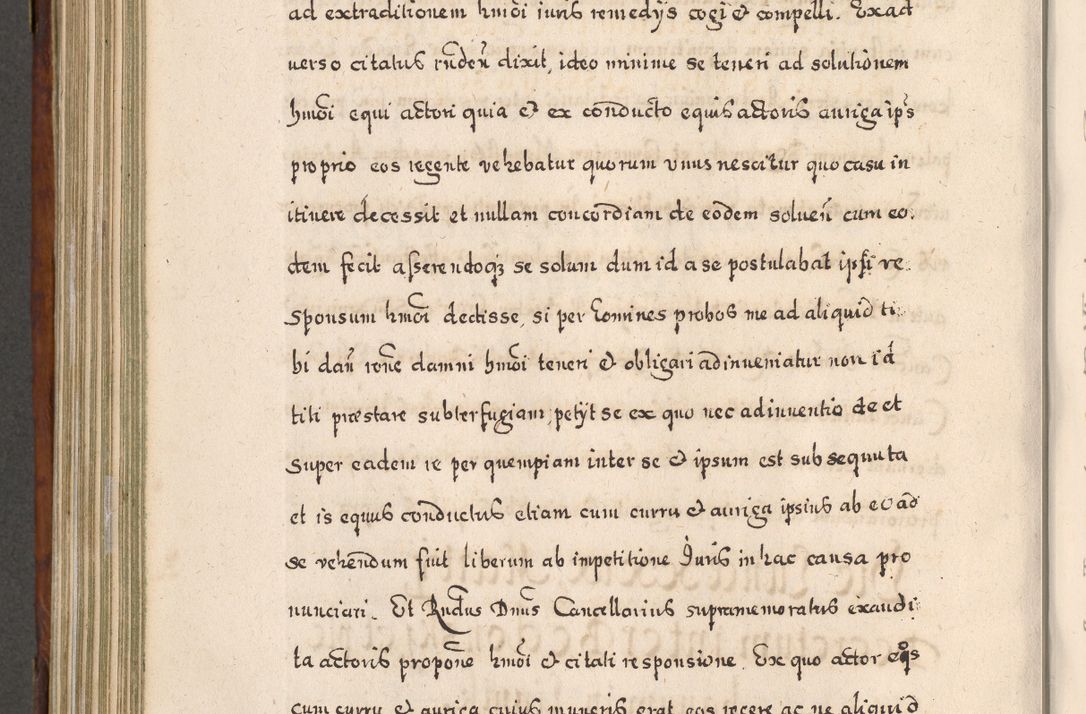 ad extraditionem hmōi iuris remedys cogi & compelli. Exad
verso citatus rnden̄ dixit, ideo minime se teneri ad solutionem
hmōi equi actori quia & ex conducto equis actoris auriga ips
proprio eos regente vehebatur quorum vnus nescitur quo casu in
itinere decessit et nullam concordiam de eōdem soluen̄ cum eo.
dem fecit asserendoq₃ se solum dum id a se postulabat ipsi re.
sponsum hmōi dedisse, si per homines probos me ad aliquid ti:
bi dan̄ rōne damni hmōi teneri & obligari adinueniatur non id
tibi præstare subterfugiam, petyt se ex quo nec adinuentio de et
super eadem re per quempiam inter se & ipsum est subsequuta
et is equus conductus etiam cum curru & auriga ipsius ab eo ad
se vehendum fuit liberum ab impetitione Juris in hac causa pro
nunciari. Et Rndus Dnus Cancellarius supramemoratus exaudi:
ta actoris propōne hmōi & citati responsione. Ex quo actor eqs
cum curru & auriga cuius muneris erat eos regere ac ne aliquid